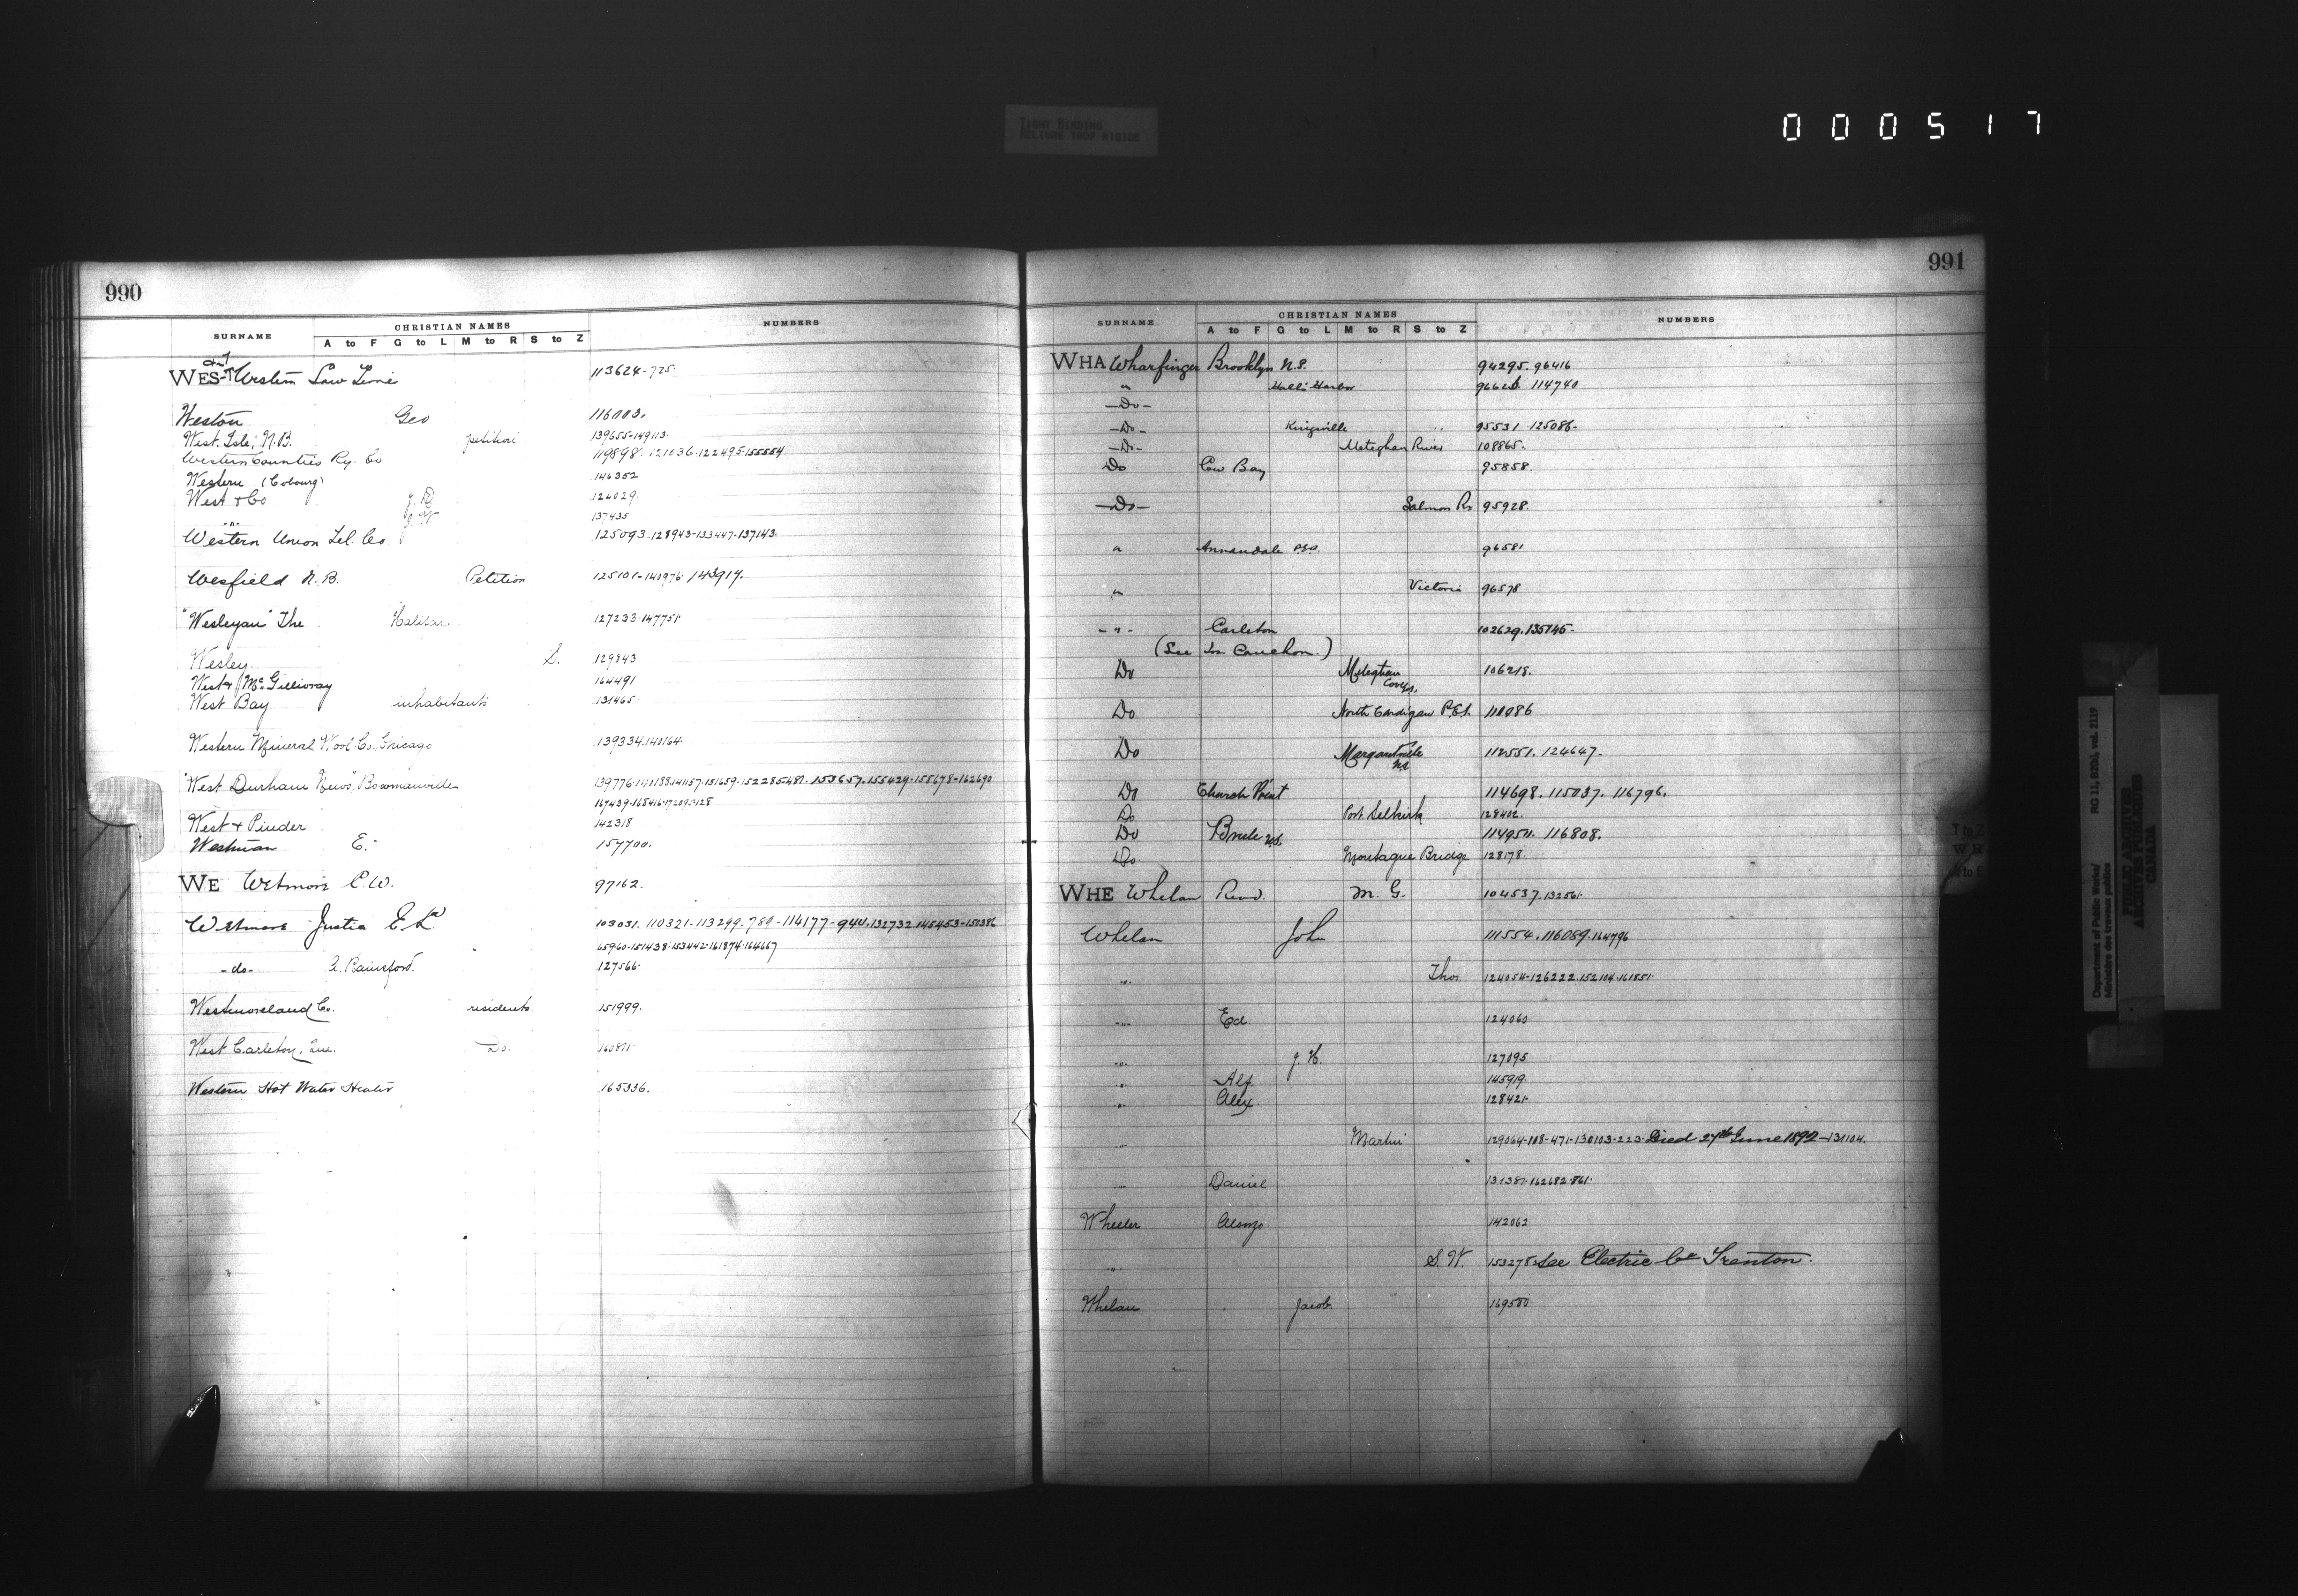 TIGHT BINDING
RELIURE TROP RIGIDE
000517
990
SURNAME CHRISTIAN NAMES NUMBERS
A to F G to L M to R S to Z
WES-T Western Law Time 113624-725
Weston Geo 116003.
West Isle, N.B. petition 139655-149113.
Western Counties Ry. Co 119898. 121036.122495.155554
Western (Cobourg) 146352
West & Co J. D 124029.
-"- 137435
Western Union Tel. Co 125093.128943-133447.137143.
Wesfield N.B. Petition 125101-140976. 143917.
"Wesleyan" The Halifax. 127233.147751.
Wesley. S. 129843
West & McGillivray 164491
West Bay inhabitants 131465
Western Mineral Wool Co., Chicago 139334.140164.
"West Durham News", Bowmanville 139776.141157.151659.152285.481.153657.155429-155678-162690
167439.168416
West & Pinder 142318
Westman E. 157700.
WE Wetmore C.W. 97162.
Wetmore Justice E.L. 103031. 110321-113299.780-114177-940.132732.145453-150386
65960-151438-153442-161874.164667
-do- Rainsford. 127566.
Westmoreland Co. residents. 151999.
West Carleton, Que. Do. 160891.
Western Hot Water Heater 165336.
991
SURNAME CHRISTIAN NAMES NUMBERS
A to F G to L M to R S to Z
WHA Wharfinger Brooklyn N.S. 94295.96416
" Hall's Harbor 114740
-Do-
-Do- Kingsville 95531 125086.
-Do- Meteghan River 108865.
Do Cow Bay 95858.
-Do- Salmon Rr 95928.
" Annandale P.E.I. 96581
" Victoria 96578
-"- Carleton 102629.135145-
(See Jos Cauchon.)
Do Meteghan Cove 106218.
Do North Cardigan P.E.I. 110086
Do Margaretville NS 112551. 124647.
Do Church Point 114698. 115037. 116796.
Do Port Selkirk 128402.
Do N.S. 114951. 116808.
Do Montague Bridge 128178.
WHE Whelan Revd. M. G. 104537.132561.
Whelan John 111554.116089.164796
" Thos 124054-126222.152104.161851.
" Ed. 124060
" J. H. 127095
" Alf. 145919.
" Alex. 128421.
" Martin 129064-108-471-130103-223. Died 27th June 1892-131104.
" Daniel 131381.162682.861.
Wheeler Alonzo 142062
" S. W. 153278. See Electric Co Trenton.
Whelan Jacob. 169580
Department of Public Works/ RG 11, B2(b), vol. 2119
Ministère des travaux publics
PUBLIC ARCHIVES
ARCHIVES PUBLIQUES
CANADA